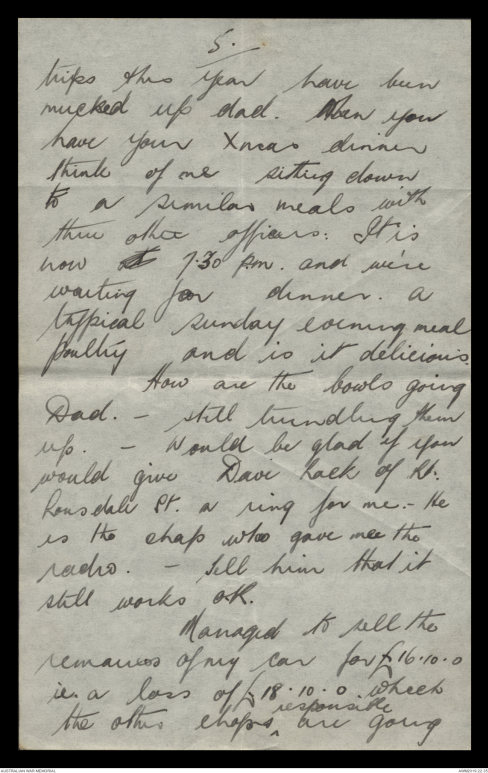 5.
trips this year have been
mucked up dad. When you
have your Xmas dinner
think of me sitting down
to a similar meals with
three other officers. It is
now 7.30 P.m. and we're
waiting for dinner. a
typpical sunday evening meal
poultry and is it delicious.
How are the bowls going
Dad. – still trundling them
up. – Would be glad if you
would give Dave Lack of Lt.
Lonsdale St. a ring for me. – He
is the chap who gave me the
radio. – Tell him that it
still works o.k.
Managed to sell the
remains of my car for £16.10.0
ie. a loss of £18.10.0. which
the other chaps responsible are going
AUSTRALIAN WAR MEMORIAL